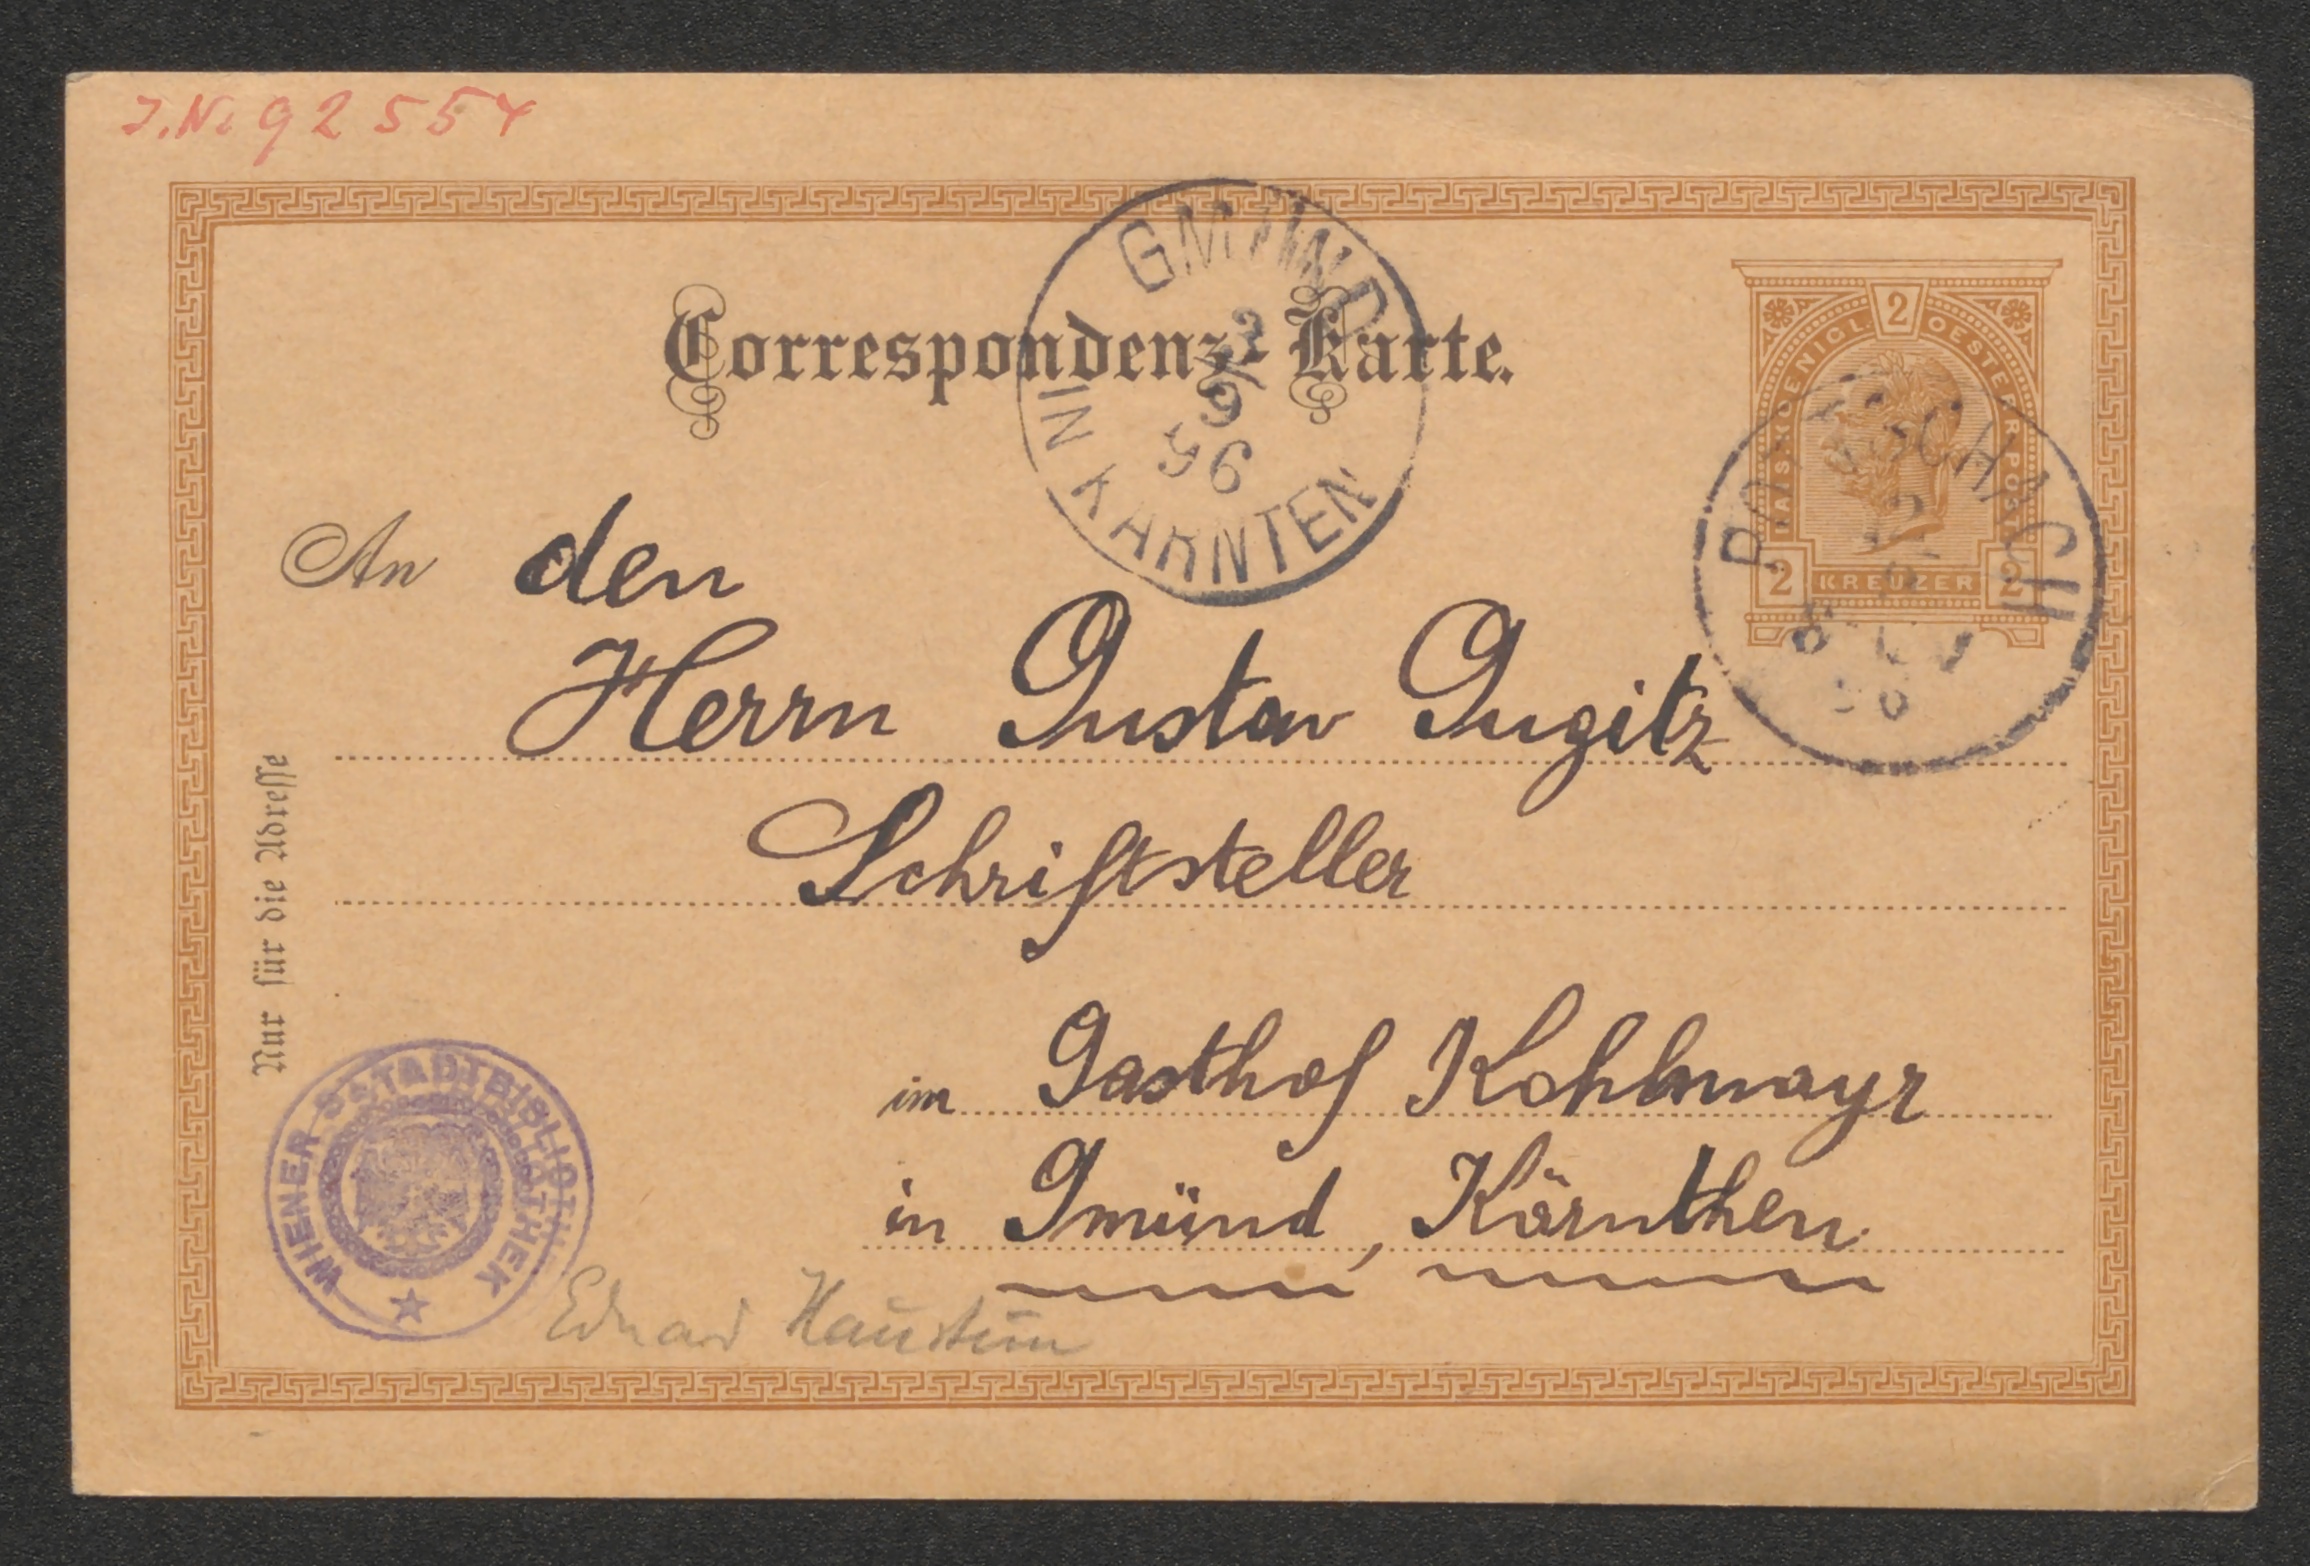 J.N. 92554
Correspondenz-Karte.
GMÜND
IN KÄRNTEN
3
9
96
KAIS. KOENIGL. OESTERR. POST
2
2 KREUZER 2
An den
Herrn Gustav Gugitz
Schriftsteller
im Gasthof Kohlmayr
in Gmünd, Kärnthen
Nur für die Adresse
WIENER STADTBIBLIOTHEK
Eduard